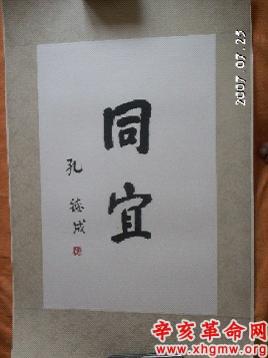 同宜
孔德成
2007 07 25
辛亥革命网
www.xhgmw.org